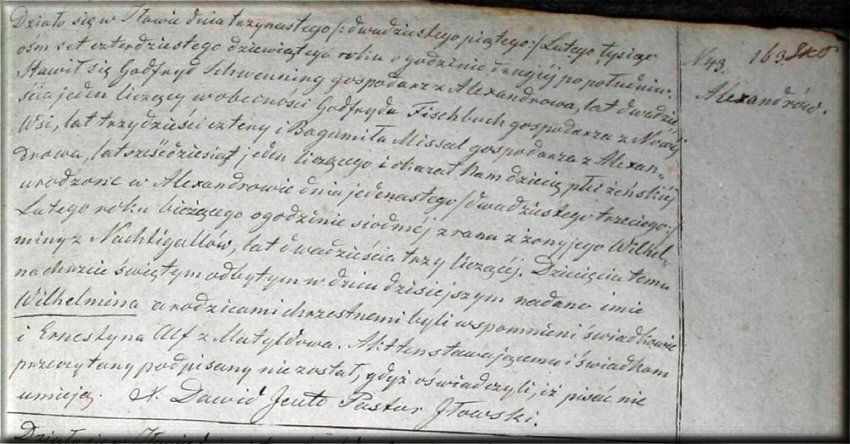 Działo się w Iłowie dnia trzynastego /: dwudziestego piątego :/ Lutego tysiąc
ośm set czterdziestego dziewiątego roku o godzinie drugiéj po południu.
Stawił się Godfryd Schwenning gospodarz z Alexandrowa, lat dwadzie„
ścia jeden liczący w obecności Godfryda Fischbuch gospodarza z Nowéj
Wsi, lat trzydzieści cztery i Bogumiła Missal gospodarza z Alexan„
drowa, lat sześćdziesiąt jeden liczącego i okazał Nam dziecię płci żeńskiéj
urodzone w Alexandrowie dnia jedenastego /: dwudziestego trzeciego :/
Lutego roku bieżącego o godzinie siódmej z rana z żony jego Wilhel„
miny z Nachtigallów, lat dwadzieścia trzy liczącéj. Dziecięciu temu
na chrzcie świętym odbytym w dniu dzisiejszym nadano imie
Wilhelmina a rodzicami chrzestnemi byli wspomnieni świadkowie
i Ernestyna Alf z Matyldowa. Akt ten stawającemu i świadkom
przeczytany podpisany nie został, gdyż oświadczyli, iż pisać nie
umieją. Dawid Pastor Iłowski.
N. 43. 163.
Alexandrów.
Działo się w Iłowie